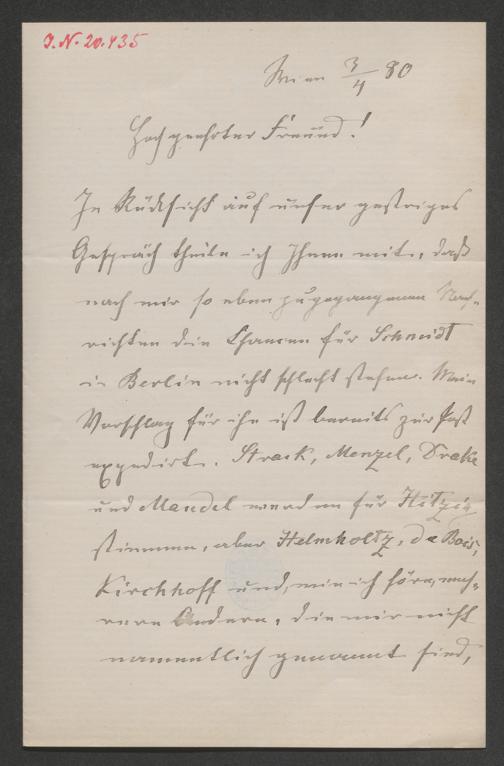 J.N. 20.435
Wien 3/4 80
Hochgeehrter Freund!
In Rücksicht auf unser gestriges
Gespräch theile ich Ihnen mit, daß
nach mir so eben zugegangenen Nach-
richten die Chancen für Schmidt
in Berlin nicht schlecht stehen. Mein
Vorschlag für ihn ist bereits zur Post
expedirt. Strack, Menzel, Drake
und Mandel werden für Hitzig
stimmen, aber Helmholtz, du Bois,
Kirchhoff und, wie ich höre, meh-
rere Andern, die mir nicht
namentlich genannt sind,